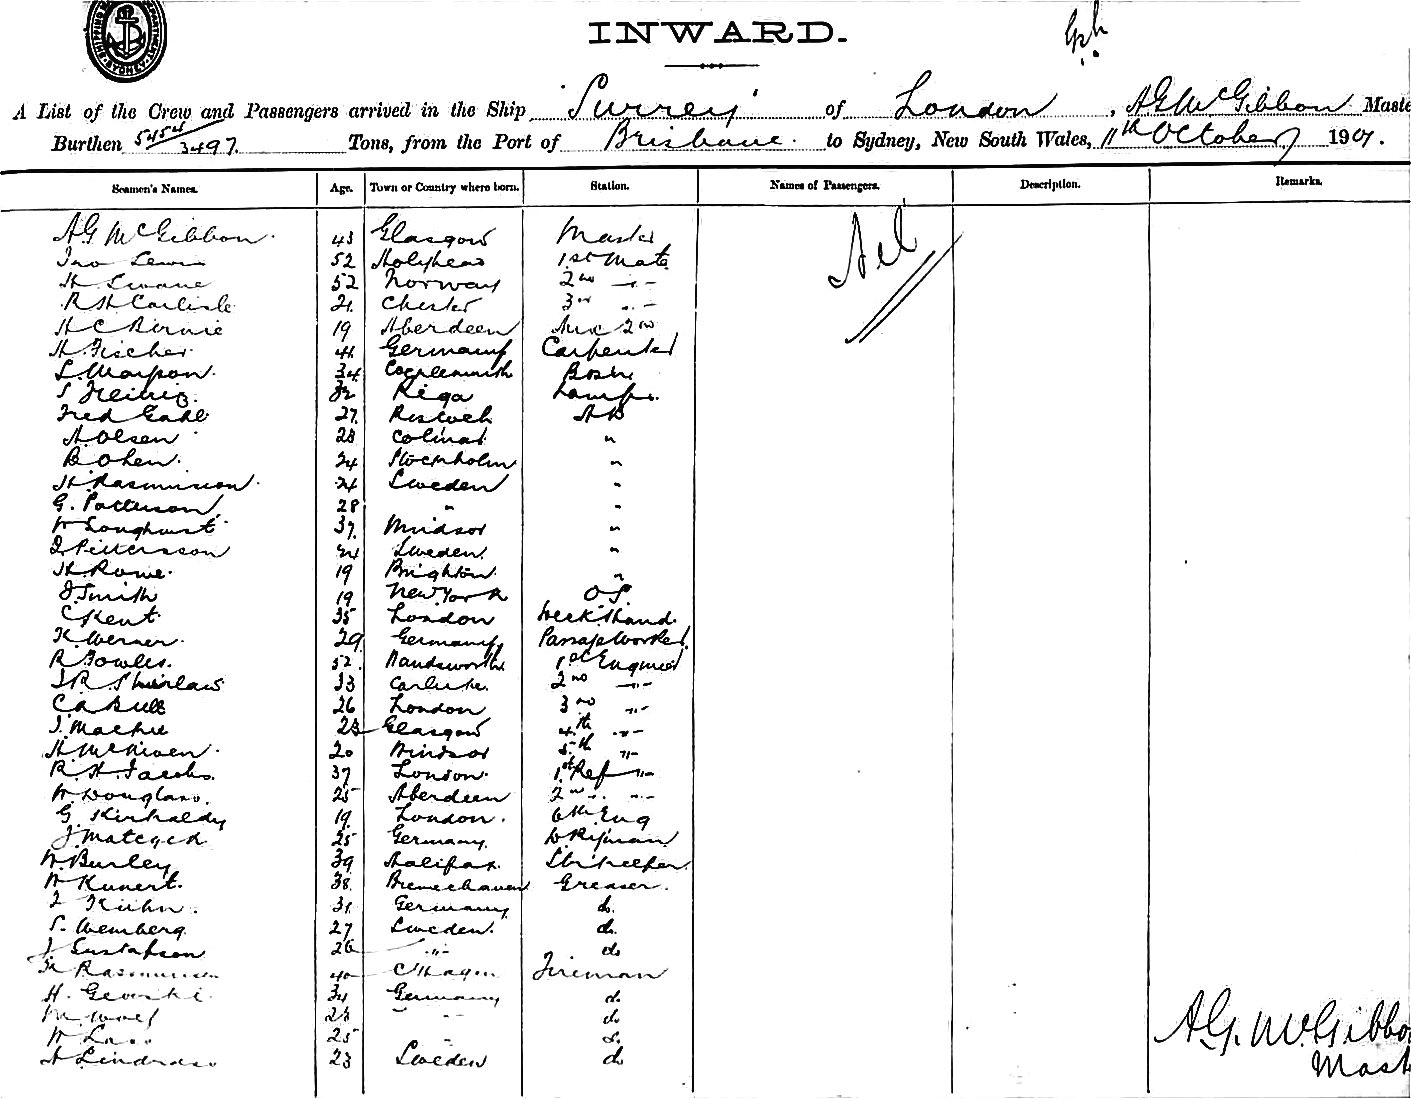 INWARD.
A List of the Crew and Passengers arrived in the Ship "Surrey" of London, A G McGibbon Maste
Burthen 5454/3497. Tons, from the Port of Brisbane. to Sydney, New South Wales, 11th October 1907.
Seamen's Names. Age. Town or Country where born. Station. Names of Passengers. Description. Remarks.
A G McGibbon. 43 Glasgow Master Nil
Jno Lewis 52 Holyhead 1st Mate
H 52 Norway 2nd -"-
R H Carlisle 21. Chester 3rd -"-
H C Birnie 19 Aberdeen Aux 2nd
H. Fischer 41 Germany Carpenter
34 Bosn
32 Riga Lamps.
Fred Gahl 27. Rostock AB
A. Olsen 28 Colmar "
B. Ohen. 24 Stockholm "
H Rasmussen. 24 Sweden "
G. Patterson 28 " "
W Longhurst 37. Windsor "
Pettersson 24 Sweden. "
H. Rowe. 19 Brighton. "
J. Smith 19 New York OS.
C Kent 35 London Deck Hand.
K Werner. 29 Germany Passage Worker.
R Bowles. 52. Wandsworth 1st Engineer
J R Shirlaw 33 Carluke. 2nd -"-
C A Bull 26 London 3rd -"-
J. Mackie 28 Glasgow 4th -"-
H McNiven. 20 Windsor 5th -"-
R. H. Jacobs. 37 London. 1st Ref -"-
W Douglass. 25 Aberdeen 2nd -"-
G Kirkaldy 19. London. 6th Eng
J. 25 Germany.
W. Burley 39 Halifax. Storekeeper
W Kunert. 38. Bremerhaven Greaser.
Kuhn. 31. Germany do.
S. Wemberg 27 Sweden. do.
J Gustafson 26 -"- do
Rasmussen 40 C'Hagen Fireman
H. 34 Germany do.
M. Wolf do
W Lass 25 do.
A Lindross 23 Sweden do
A G. McGibbo
Mast